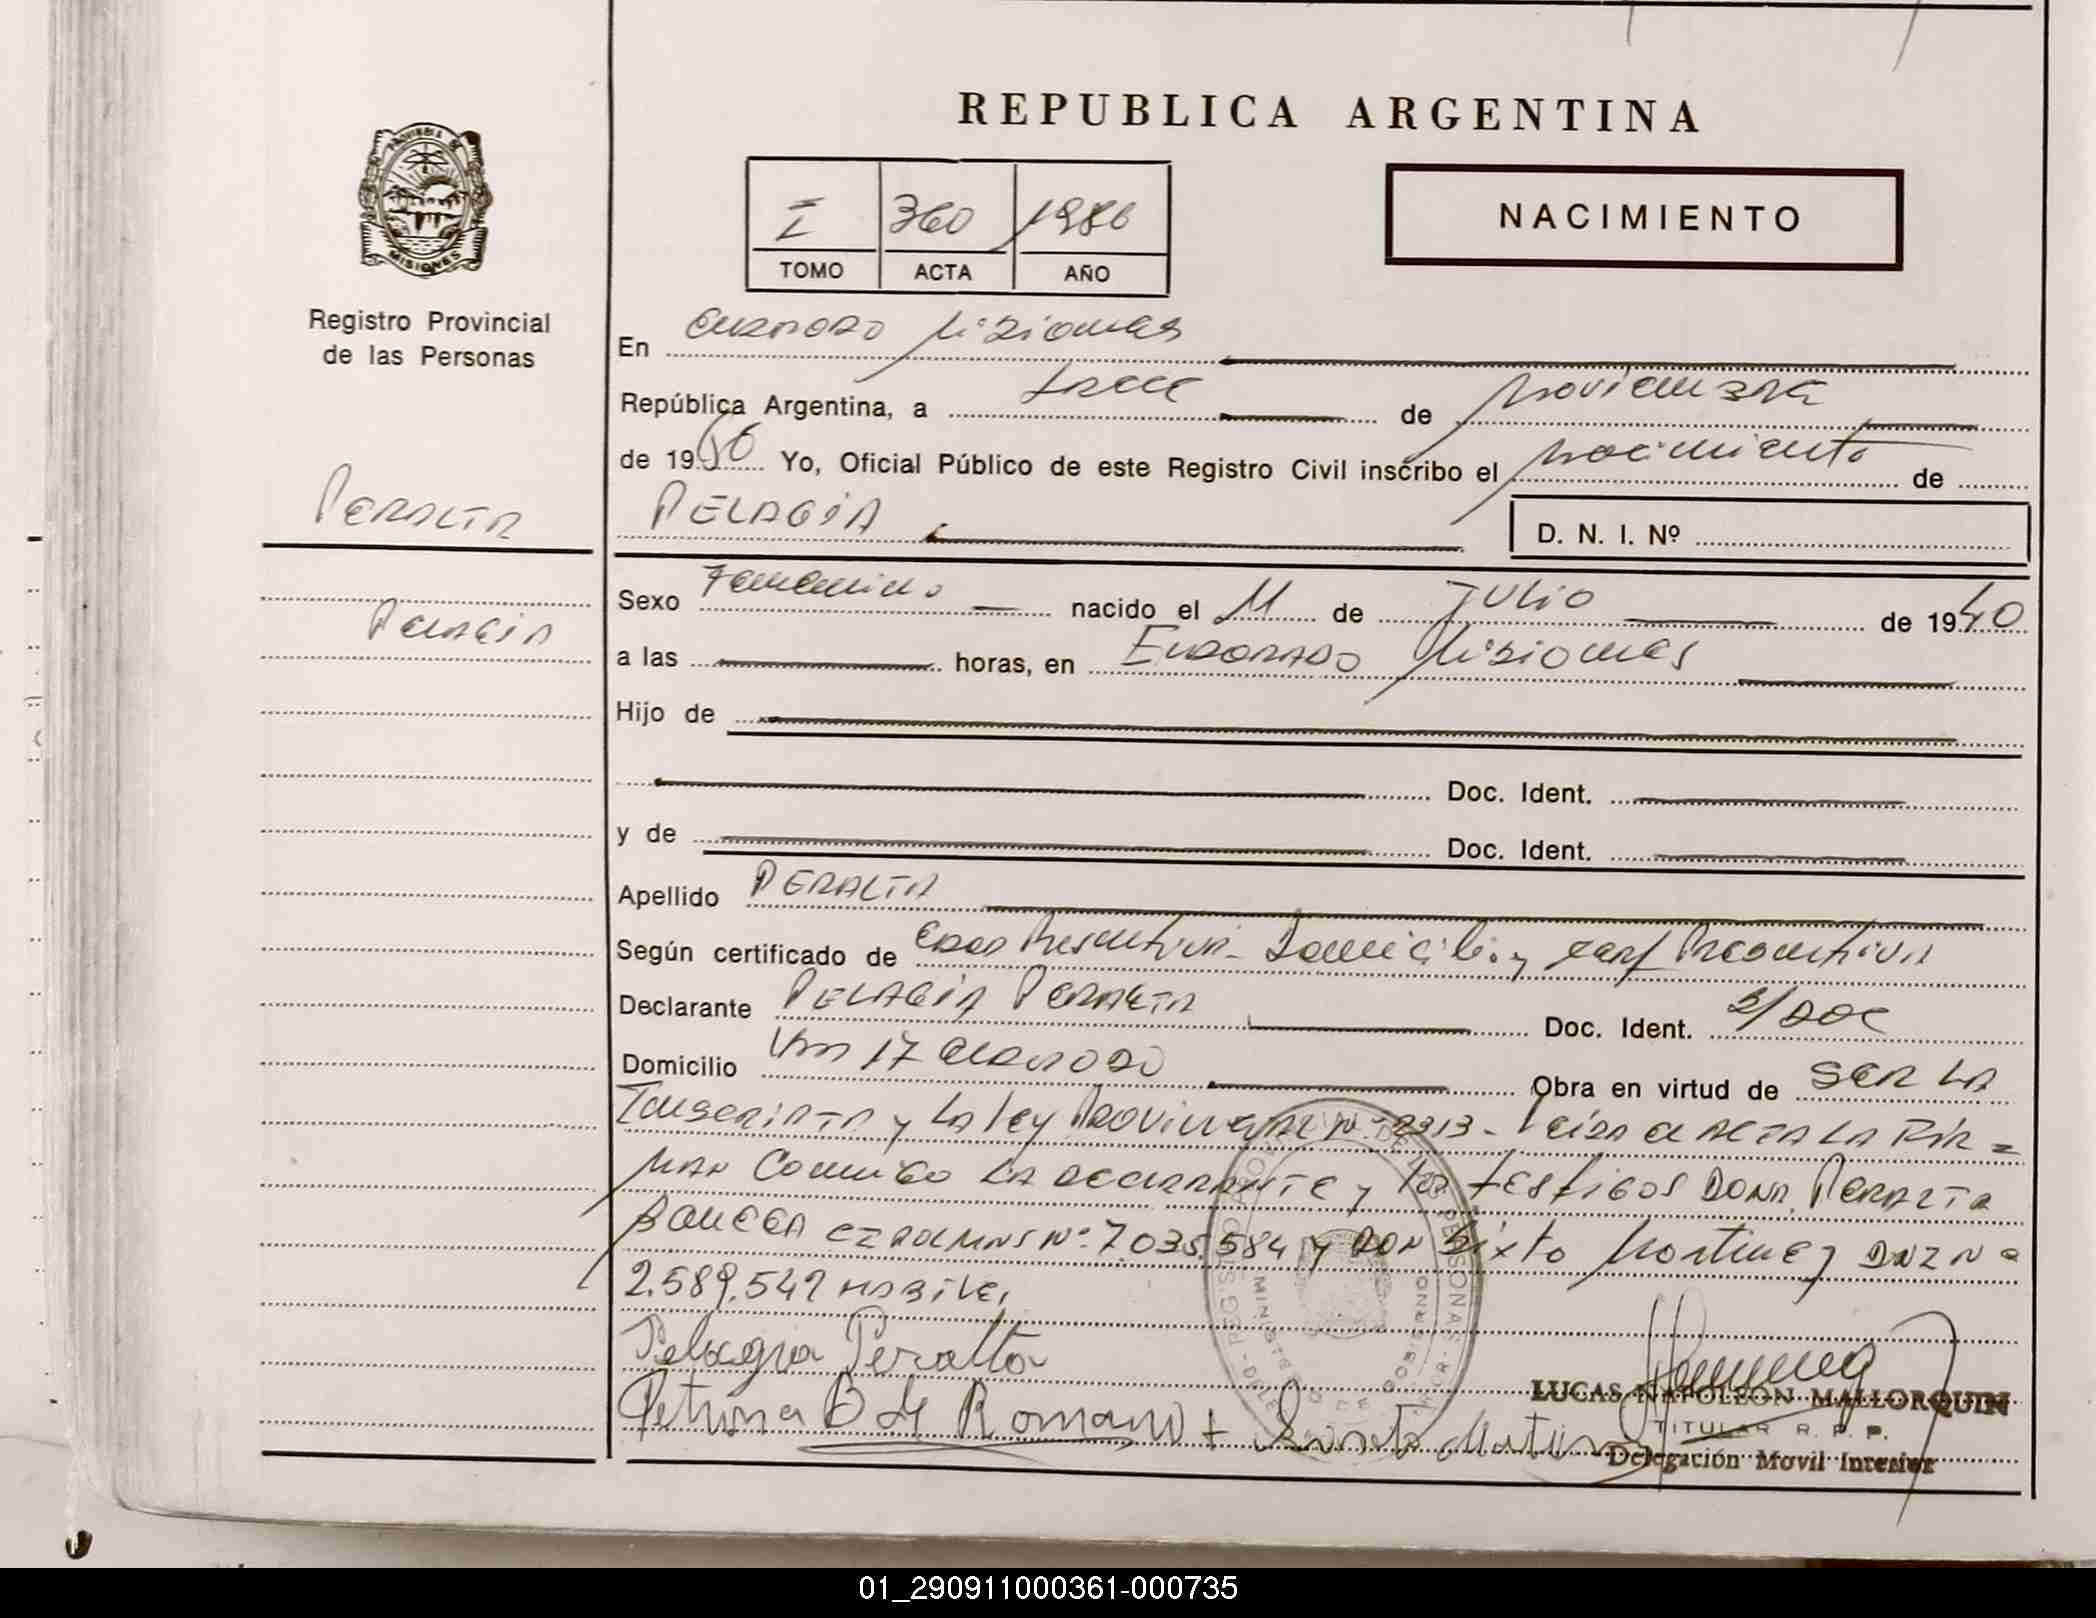 REPUBLICA ARGENTINA
PROVINCIA DE
MISIONES
Registro Provincial
de las Personas
NACIMIENTO
I 360 1986
TOMO ACTA AÑO
En ELDORADO Misiones
República Argentina, a trece de Noviembre
de 1986 Yo, Oficial Público de este Registro Civil inscribo el Nacimiento de
PELAGIA
D. N. I. Nº
PERALTA
PELAGIA
Sexo Femenino nacido el 11 de JULIO de 1940
a las horas, en ELDORADO Misiones
Hijo de
Doc. Ident.
y de Doc. Ident.
Apellido PERALTA
Según certificado de EDAD Presuntiva - Domicilio y Presuntiva
Declarante PELAGIA PERALTA Doc. Ident. S/DOC
Domicilio Km 17 ELDORADO Obra en virtud de SER LA
INSCRIPTA y LA LEY PROVINCIAL Nº 2313 - LEIDA EL ACTA LA FIR=
MAN CONMIGO LA DECLARANTE y los testigos DOÑA PERALTA
Nº 7035.584 y DON Sixto Martinez DNI Nº
2.589.542 HABILES
Pelagia Peralta
Petrona B de Romano + Sixto
LUCAS NAPOLEON MALLORQUIN
TITULAR R. P. P.
Delegación Movil Interior
01_290911000361-000735